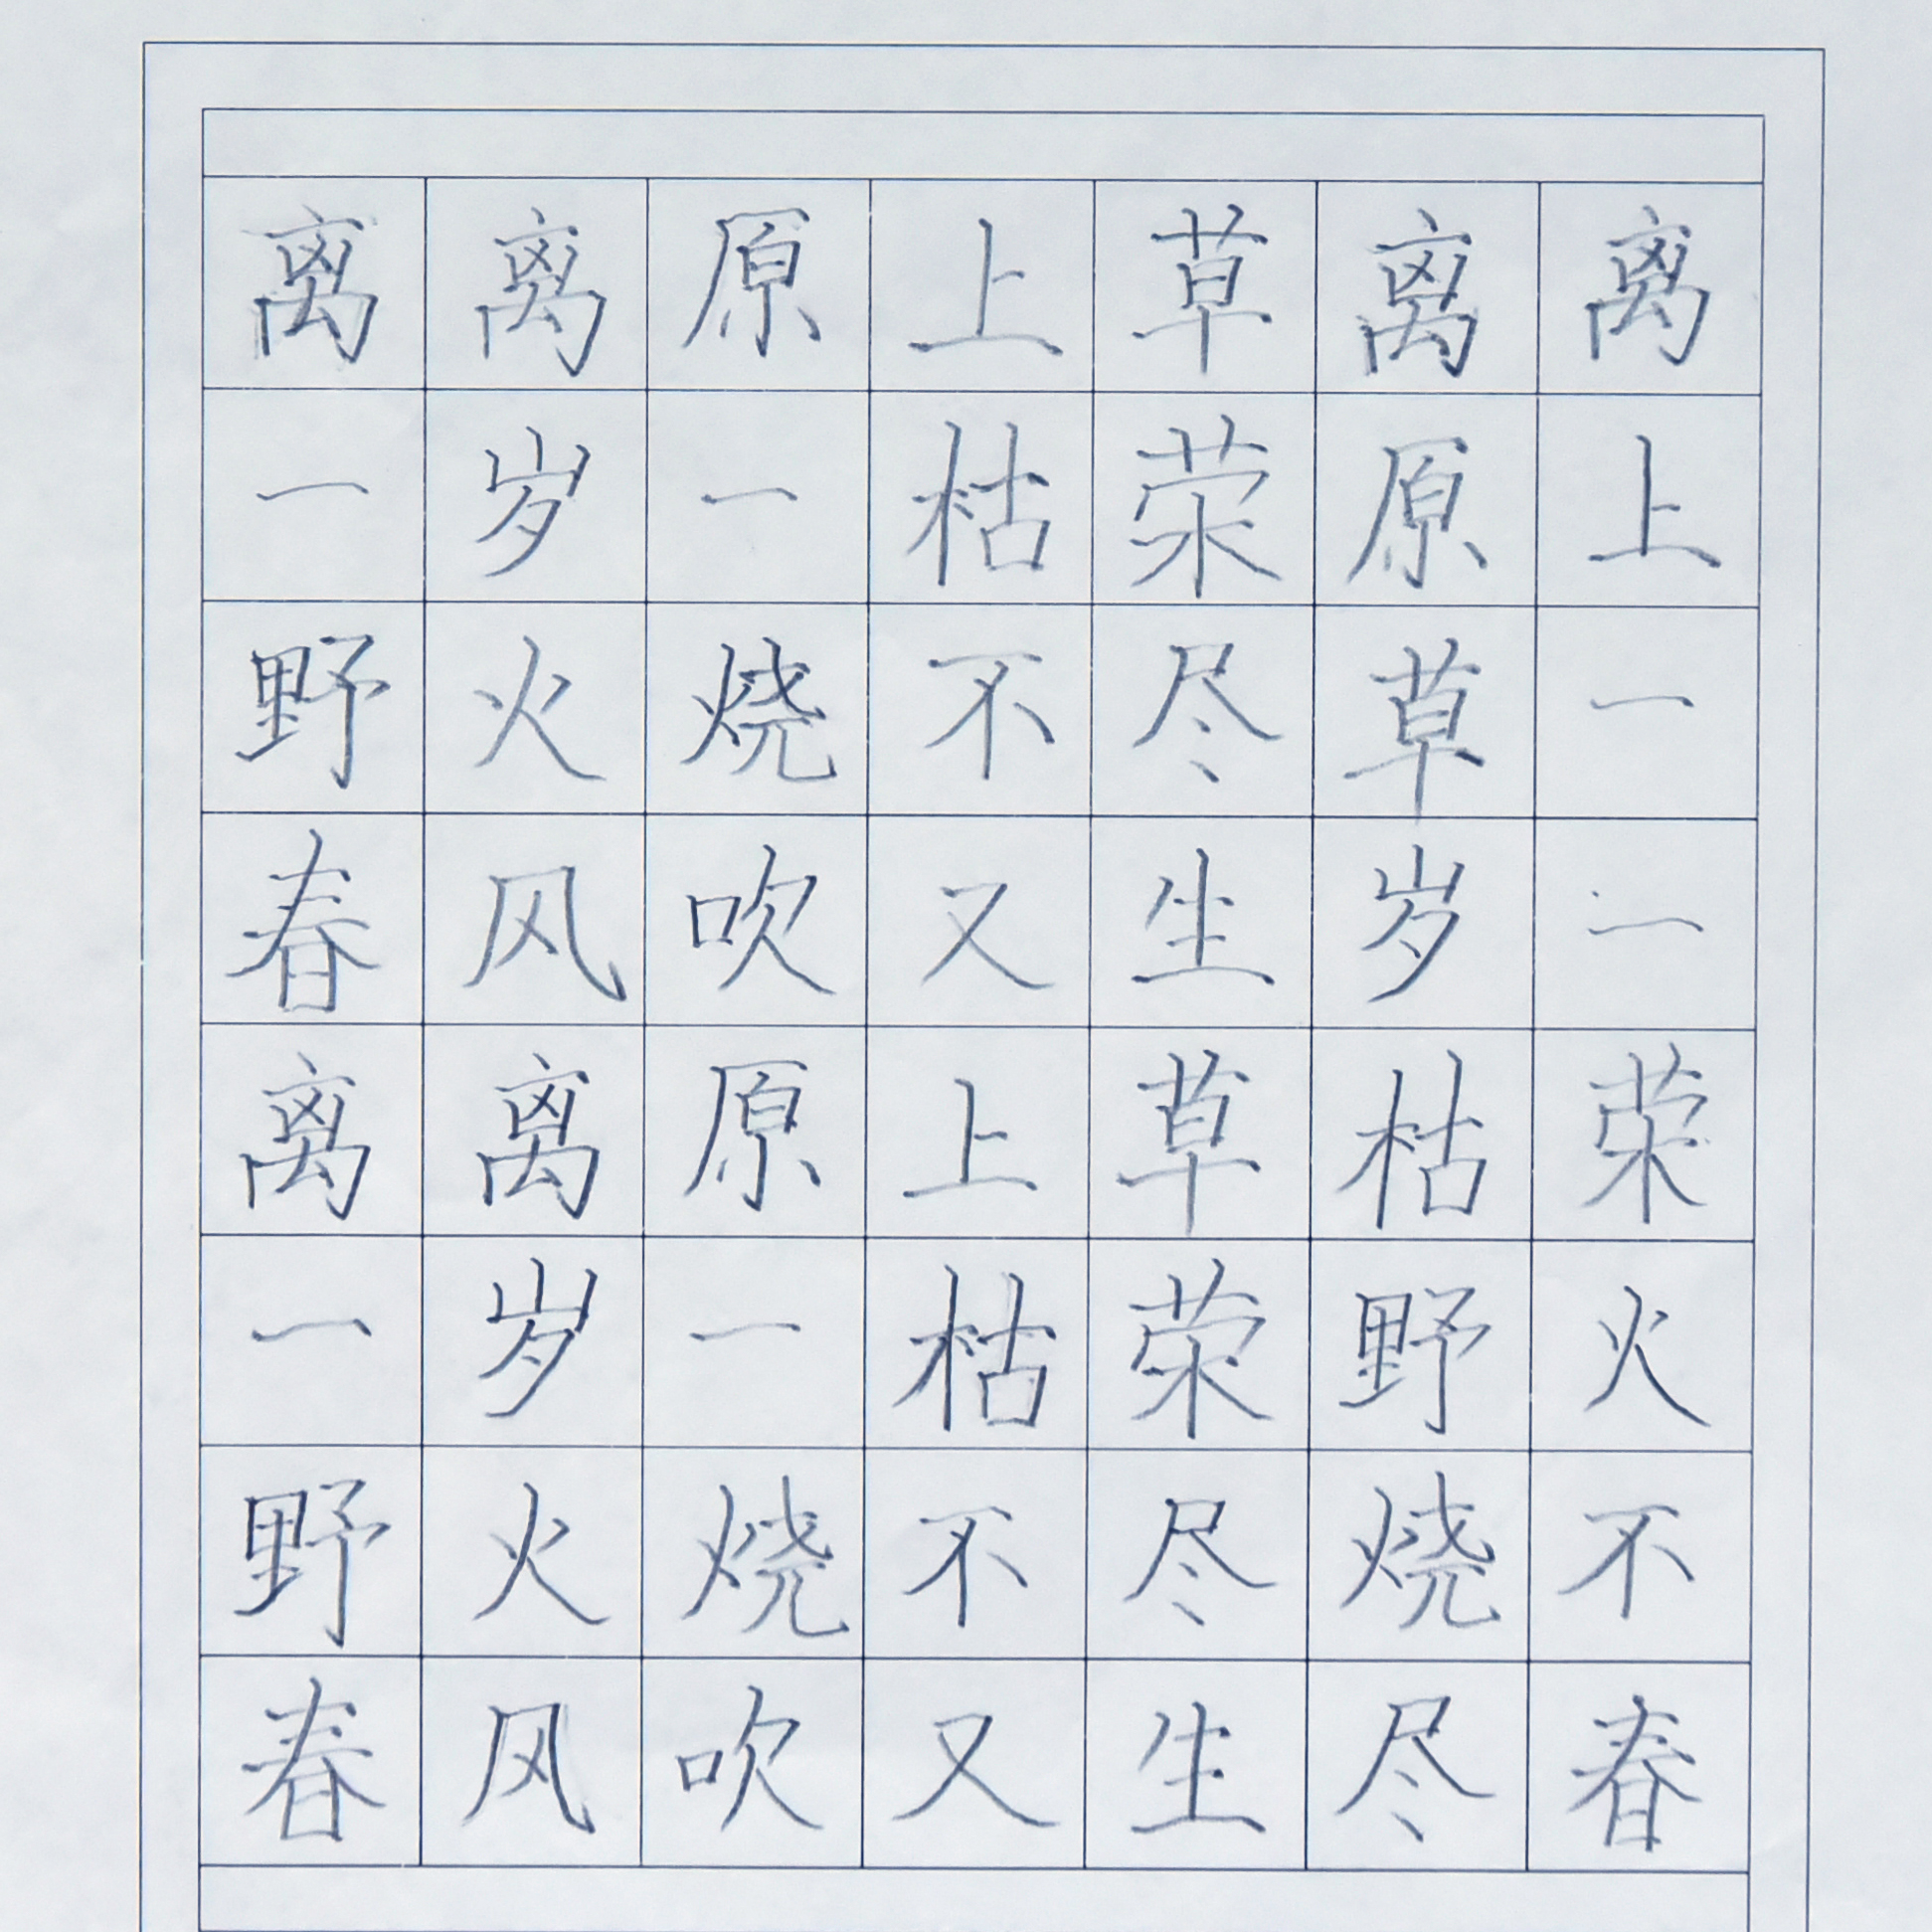 离离原上草离离
一岁一枯荣原上
野火烧不尽草一
春风吹又生岁一
离离原上草枯荣
一岁一枯荣野火
野火烧不尽烧不
春风吹又生尽春